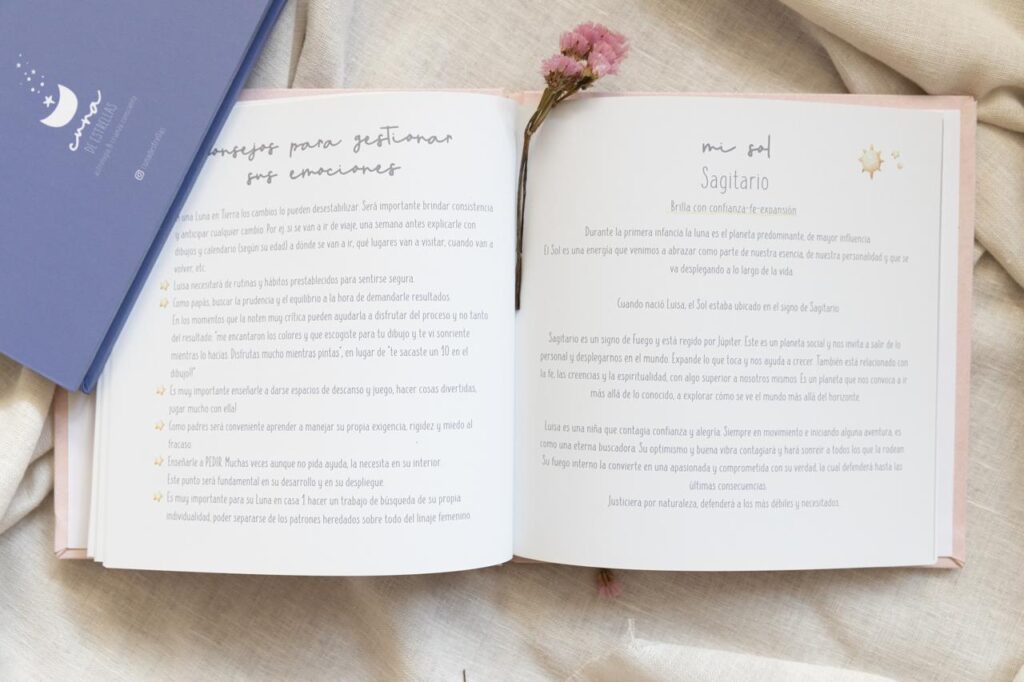 cuna
DE ESTRELLAS
@cunadestrellas
consejos para gestionar
sus emociones
una Luna en Tierra los cambios lo pueden desestabilizar. Será importante brindar consistencia
y anticipar cualquier cambio. Por ej. si se van a ir de viaje, una semana antes explicarle con
dibujos y calendario (según su edad) a dónde se van a ir, qué lugares van a visitar, cuando van a
volver, etc.
Luisa necesitará de rutinas y hábitos prestablecidos para sentirse segura.
Como papás, buscar la prudencia y el equilibrio a la hora de demandarle resultados.
En los momentos que la noten muy crítica pueden ayudarla a disfrutar del proceso y no tanto
del resultado: "me encantaron los colores y que escogiste para tu dibujo y te vi sonriente
mientras lo hacías. Disfrutas mucho mientras pintas", en lugar de "te sacaste un 10 en el
dibujo!!"
Es muy importante enseñarle a darse espacios de descanso y juego, hacer cosas divertidas,
jugar mucho con ella!
Como padres será conveniente aprender a manejar su propia exigencia, rigidez y miedo al
fracaso.
Enseñarle a PEDIR. Muchas veces aunque no pida ayuda, la necesita en su interior.
Este punto será fundamental en su desarrollo y en su despliegue.
Es muy importante para su Luna en casa 1 hacer un trabajo de búsqueda de su propia
individualidad, poder separarse de los patrones heredados sobre todo del linaje femenino.
mi sol
Sagitario
Brilla con confianza-fe-expansión
Durante la primera infancia la luna es el planeta predominante, de mayor influencia.
El Sol es una energía que venimos a abrazar como parte de nuestra esencia, de nuestra personalidad y que se
va desplegando a lo largo de la vida.
Cuando nació Luisa, el Sol estaba ubicado en el signo de Sagitario
Sagitario es un signo de Fuego y está regido por Júpiter. Este es un planeta social y nos invita a salir de lo
personal y desplegarnos en el mundo. Expande lo que toca y nos ayuda a crecer. También está relacionado con
la fe, las creencias y la espiritualidad, con algo superior a nosotros mismos. Es un planeta que nos convoca a ir
más allá de lo conocido, a explorar cómo se ve el mundo más allá del horizonte.
Luisa es una niña que contagia confianza y alegría. Siempre en movimiento e iniciando alguna aventura, es
como una eterna buscadora. Su optimismo y buena vibra contagiará y hará sonreír a todos los que la rodean.
Su fuego interno la convierte en una apasionada y comprometida con su verdad, la cual defenderá hasta las
últimas consecuencias.
Justiciera por naturaleza, defenderá a los más débiles y necesitados.